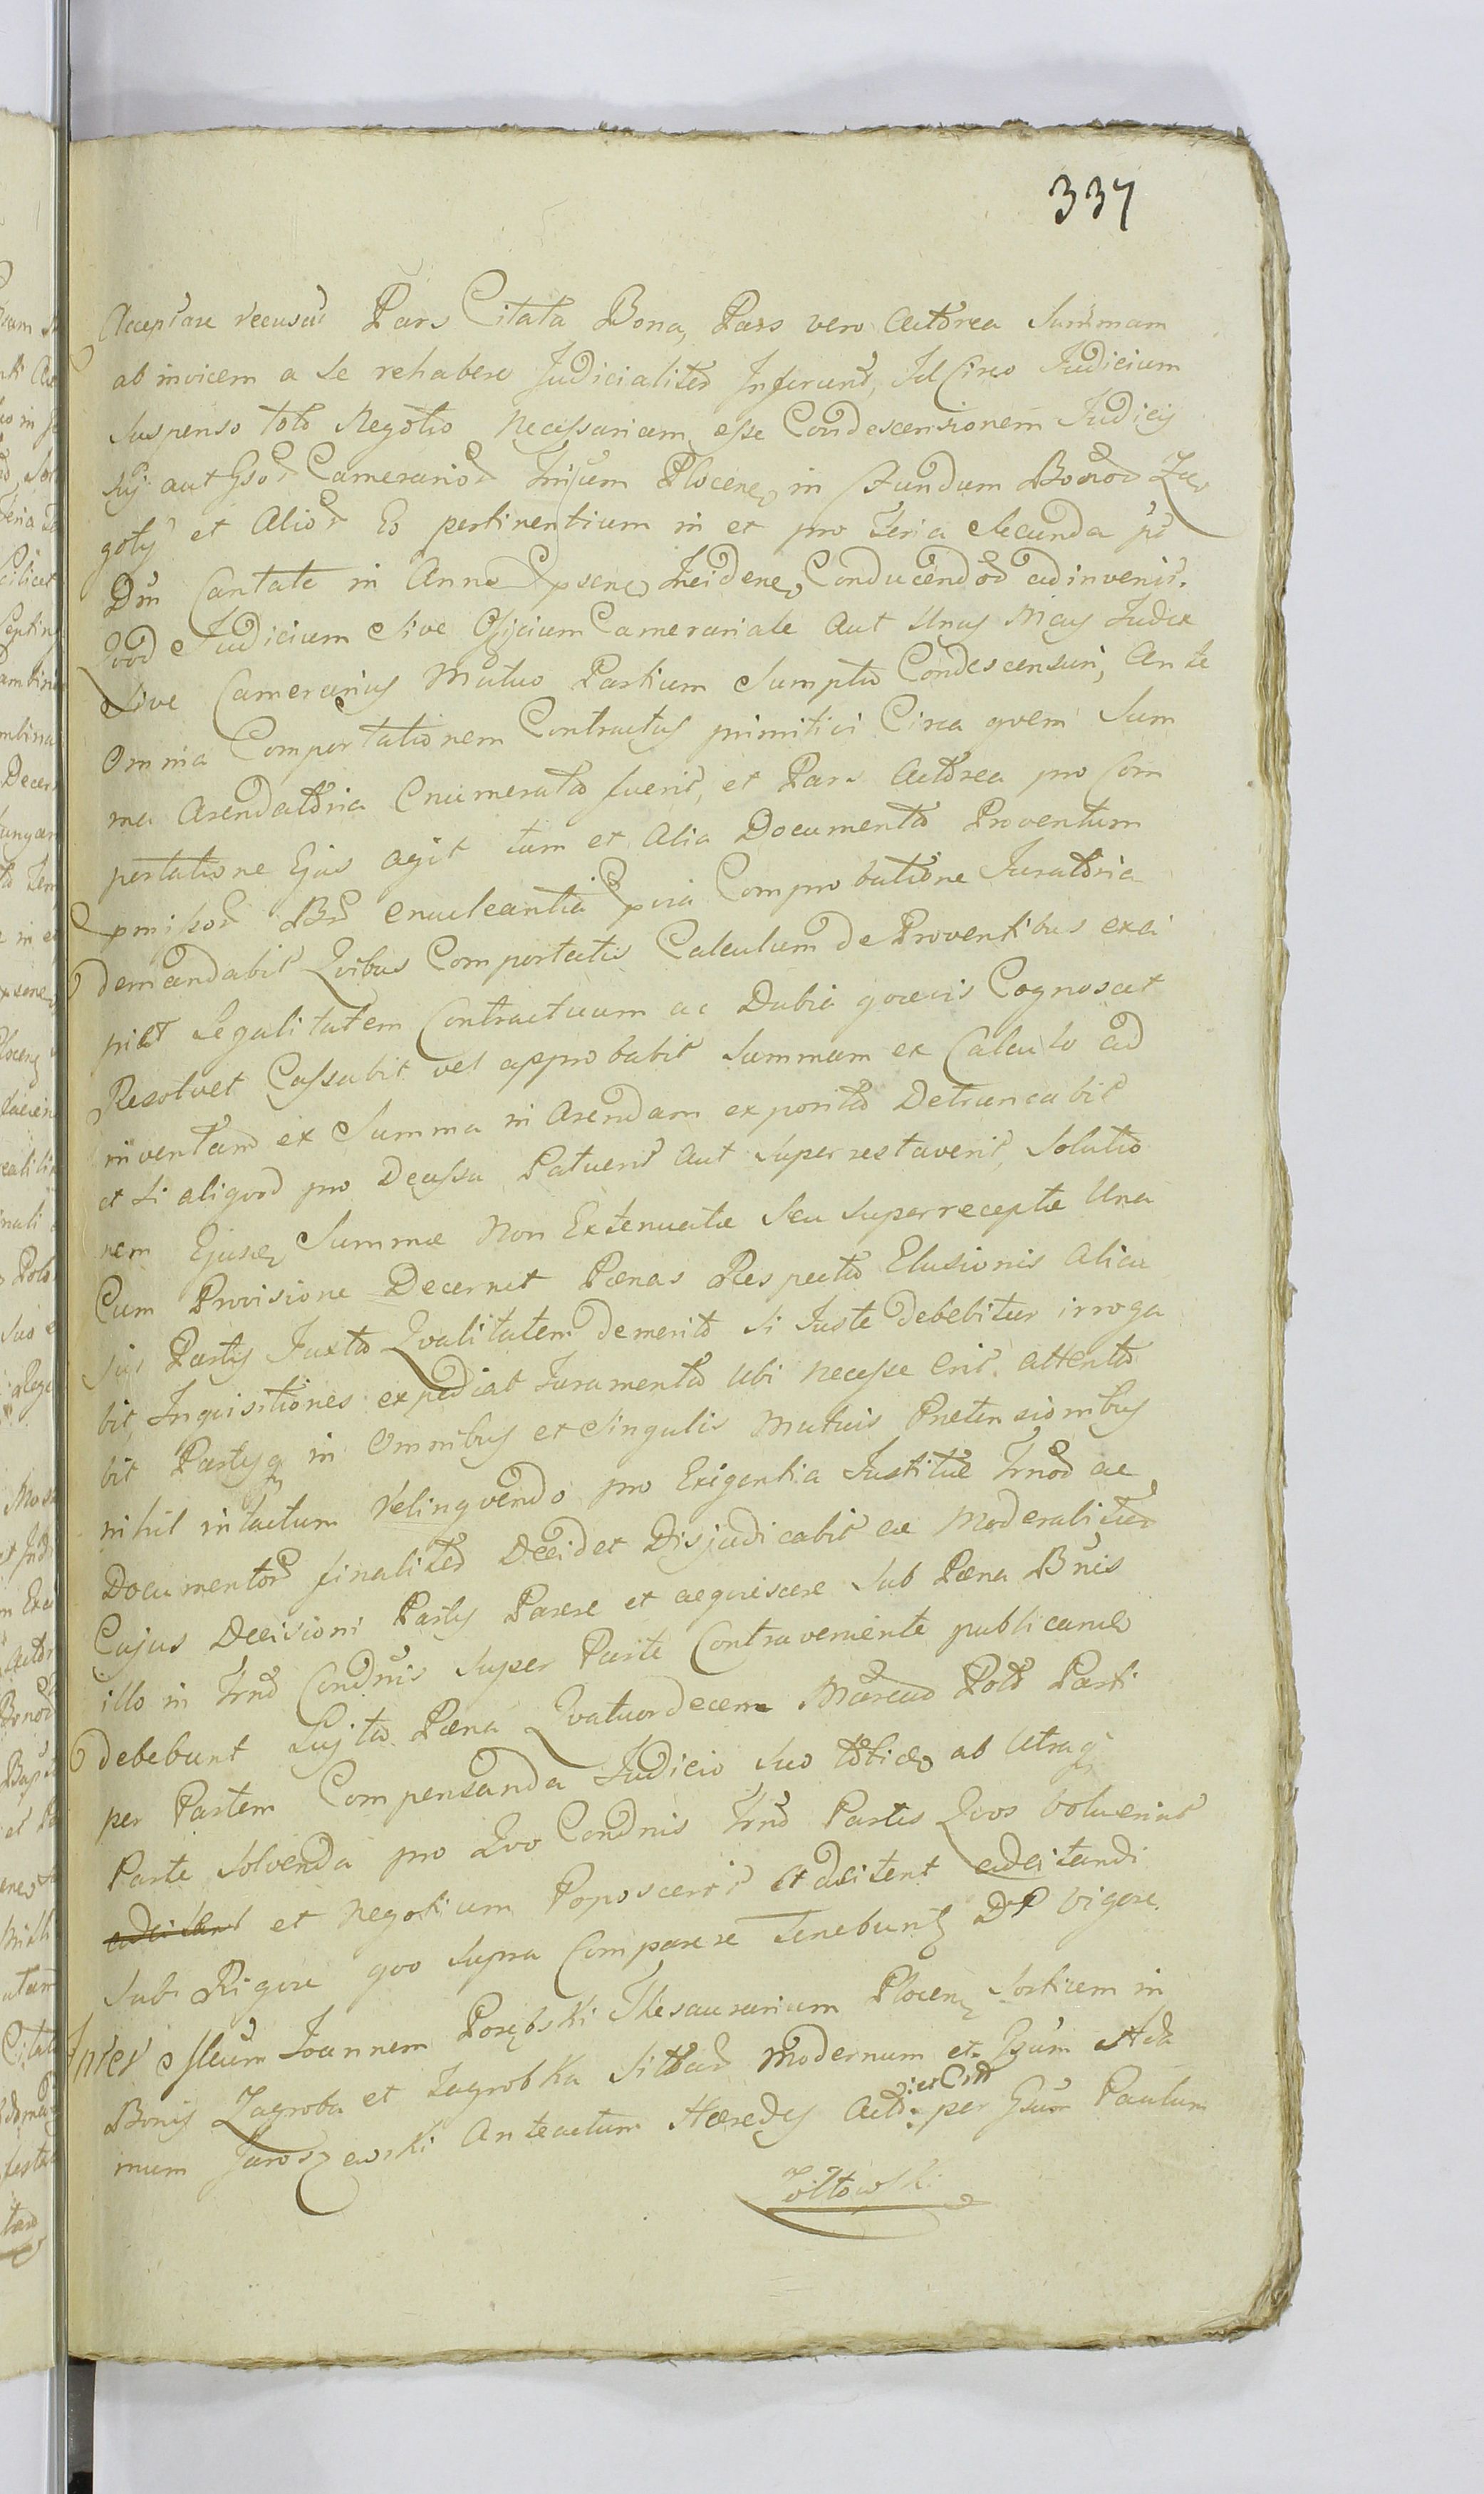 337
Acceptare recusat Pars Citata Bona, Pars vero Actorea Summam
ab invicem a Se rehabere Judicialiter Inferunt, Id Circo Judicium
Suspenso toto Negotio Necessariam esse Condescensionem Judicij
Sui aut Gsor Camerarior Plocen in Fundum Bonor Za
goty et Alior Eo pertinentium in et pro Feria Secunda pt
Dm Cantate in Anno psen Inciden Conducendor adinvenit.
Qvod Judicium Sive Officium Camerariale Aut Unus Judex
Sive Camerarius Mutuo Partium Sumptu Condescensuri, Ante
Omnia Comportationem Contractus primitivi Circa qvem Sum
ma Arendatoria Enumerata fuerit, et Pars Actorea pro Com
portatione Ejus agit tum et Alia Documenta Proventum
pmissor Bnr enucleantia pvia Comprobatione Juratoria
demandabit Qvibus Comportatis Calculum de Proventibus exci
piet Legalitatem Contractuum ac Dubia qvaevis Cognoscet
Resolvet Cassabit vel approbabit Summam ex Calculo ad
inventam ex Summa in Arendam exposita Detruncabit
et Si aliqvod pro Decessu Patuerit Aut Superrestaverit, Solutio
nem Ejusd Summae Non Extenuatae Seu Superreceptae Una
Cum Provisione Decernet Paenas Respectu Elusionis Alicu
jus Partis Juxta Qvalitatem demeriti Si Juste debebitur irroga
bit, Inqvisitiones expediat Juramenta Ubi Necesse erit. attenta
bit Partesq in Omnibus et Singulis Mutuis Praetensionibus
nihil intactum relinqvendo pro Exigentia Justitiae Trnor ac
Documentor finaliter Decidet Disjudicabit ac Moderabitur
Cujus Decisioni Partes Parere et acqviescere Sub Paena Bnis
illo in Trno Condnis Super Parte Contraveniente publican
debebunt Luita Paena Qvatuordecem Marcar Pol Parti
per Partem Compensanda Judicio Suo toties ab Utraq
Parte Solvenda pro Qvo Condnis Trno Partes Qvos voluerint
et Negotium Poposcerit Adcitent adcitandi
Sub Rigore qvo Supra Comparere Tenebunt D P Vigore.
Inter Joannem Porębski Thesaurarium Plocen Sortium in
Bonis Zagroba et Zagrobka Sitar Modernum et Gsum Ada
mum Jaroszewski Anteactum Haeredes Act: :et Citt per Gsum Paulum
Zołtowski